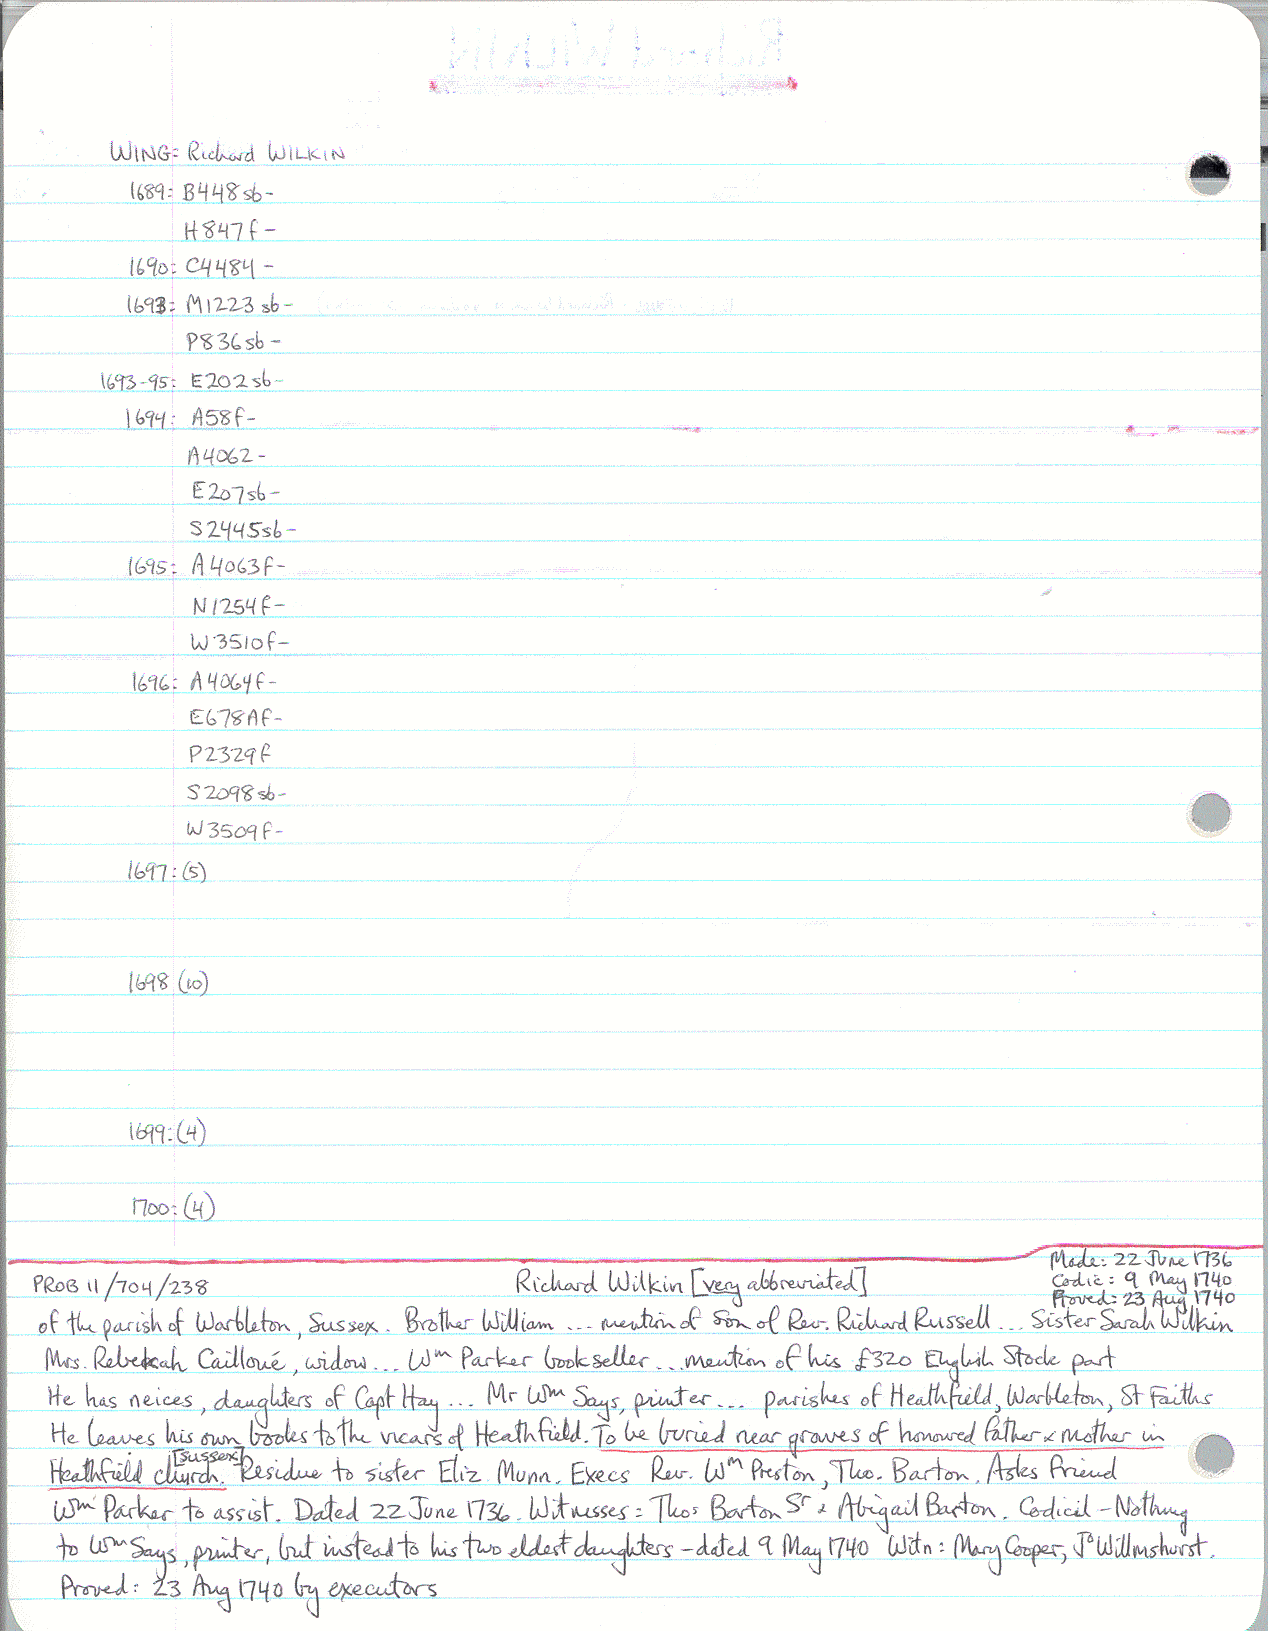 WING: Richard WILKIN
1689: B448sb-
H847f-
1690: C4484-
1693: M1223sb-
P836sb-
1693-95: E202sb-
1694: A58f-
A4062-
E207sb-
S2445sb-
1695: A4063f-
N1254f-
W3510f-
1696: A4064f-
E678Af-
P2329f
S2098sb-
W3509f-
1697: (5)
1698 (10)
1699: (4)
1700: (4)
Made: 22 June 1736
PROB 11/704/238 Richard Wilkin [very abbreviated] Codic: 9 May 1740
Proved: 23 Aug 1740
of the parish of Warbleton, Sussex. Brother William ... mention of son of Rev. Richard Russell ... Sister Sarah Wilkin
Mrs. Rebekah Cailloué, widow ... Wm Parker bookseller ... mention of his £320 English Stock part
He has neices, daughters of Capt Hay ... Mr Wm Says, printer ... parishes of Heathfield, Warbleton, St Faiths
He leaves his own books to the vicars of Heathfield. To be buried near graves of honoured father & mother in
[Sussex]
Heathfield church. Residue to sister Eliz Munn. Execs Rev. Wm Preston, Tho. Barton. Asks friend
Wm Parker to assist. Dated 22 June 1736. Witnesses: Thos Barton Sr & Abigail Barton. Codicil - Nothing
to Wm Says, printer, but instead to his two eldest daughters - dated 9 May 1740 Witn: Mary Cooper, Jo Willmshurst.
Proved: 23 Aug 1740 by executors